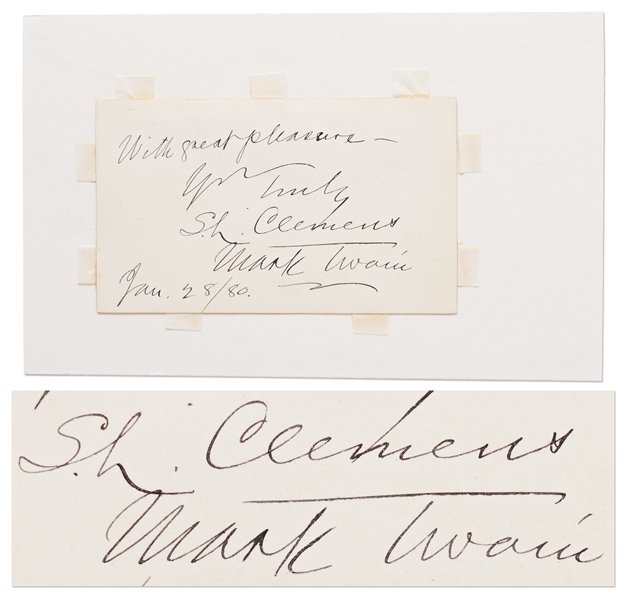 With great pleasure —
Yrs Truly
S. L. Clemens
Mark Twain
Jan. 28/80.
S. L. Clemens
Mark Twain